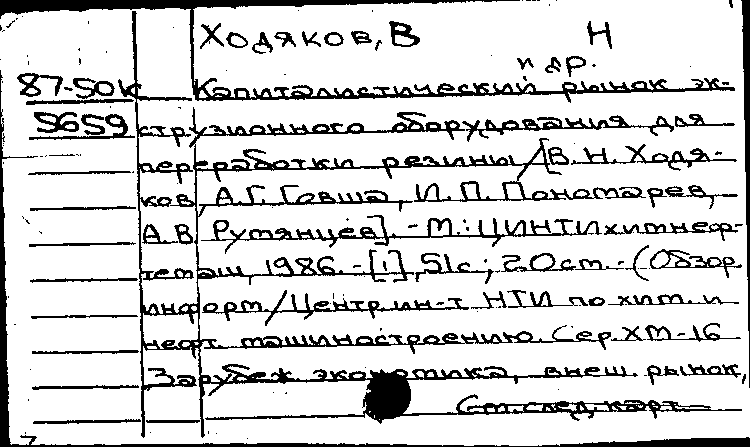 Ходяков, В Н
и др.
87-50к Капиталистический рынок эк-
5659 струзионного оборудования для
переработки резины/[В. Н. Ходя-
ков, А.Г. Говша, И. П. Пономарев,
А. В. Румянцев]. - М.: ЦИНТИхимнеф-
темаш, 1986. - [1], 51с; 20 см. - (Обзор.
информ/Центр. ин-т НТИ по хим. и
нефт. машиностроению. Сер. ХМ-16
Зарубеж экономика, внеш. рынок,
См. след. карт.